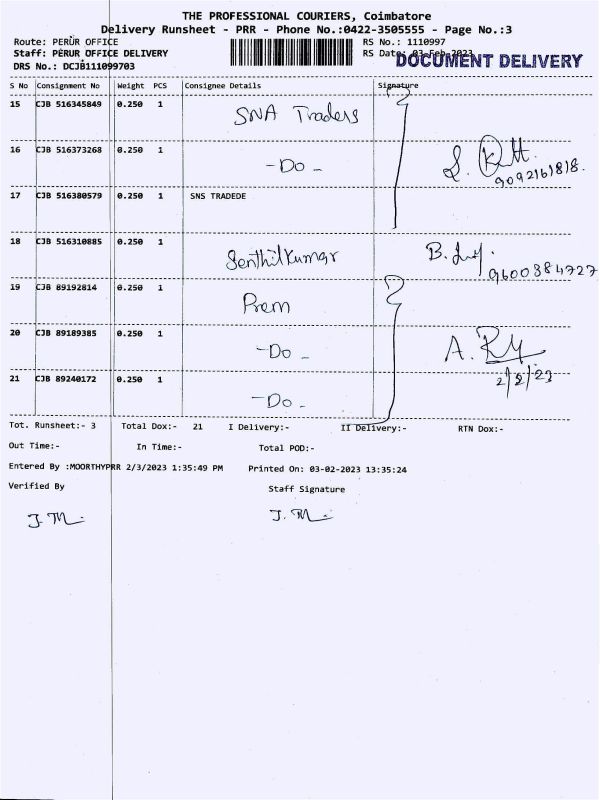 THE PROFESSIONAL COURIERS, Coimbatore
Delivery Runsheet - PRR - Phone No.:0422-3505555 - Page No.:3
Route: PERUR OFFICE
RS No.: 1110997
Staff: PERUR OFFICE DELIVERY
RS Date: 03-Feb-2023
DOCUMENT DELIVERY
DRS No.: DCJB111099703
S No Consignment No Weight PCS Consignee Details Signature
15 CJB 516345849 0.250 1 SNA Traders
16 CJB 516373268 0.250 1 -Do-
9092161818.
17 CJB 516380579 0.250 1 SNS TRADEDE
18 CJB 516310885 0.250 1 Senthilkumar
9600384727
19 CJB 89192814 0.250 1 Prem
20 CJB 89189385 0.250 1 -Do-
21 CJB 89240172 0.250 1 -Do-
Tot. Runsheet:- 3 Total Dox:- 21 I Delivery:- II Delivery:- RTN Dox:-
Out Time:- In Time:- Total POD:-
Entered By :MOORTHYPRR 2/3/2023 1:35:49 PM Printed On: 03-02-2023 13:35:24
Verified By Staff Signature